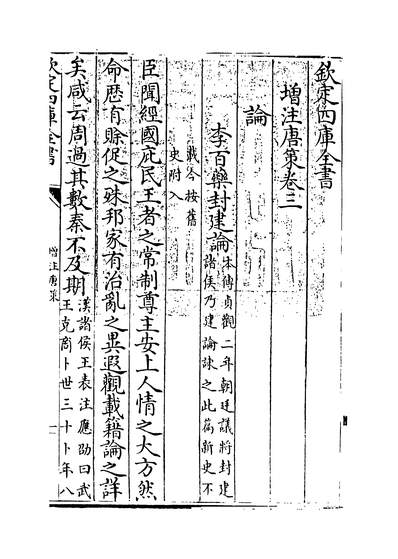 欽定四庫全書
增注唐策卷三
論
李百藥封建論本傳貞觀二年朝廷議將封建
諸侯乃建論諫之此篇新史不
載今按舊
史附入
臣聞經國庇民王者之常制尊主安上人情之大方然
命歴有賒促之殊邦家有治亂之異遐觀載籍論之詳
矣咸云周過其數秦不及期漢諸侯王表注應劭曰武
王克商卜世三十卜年八
欽定四庫全書
增注唐策
一